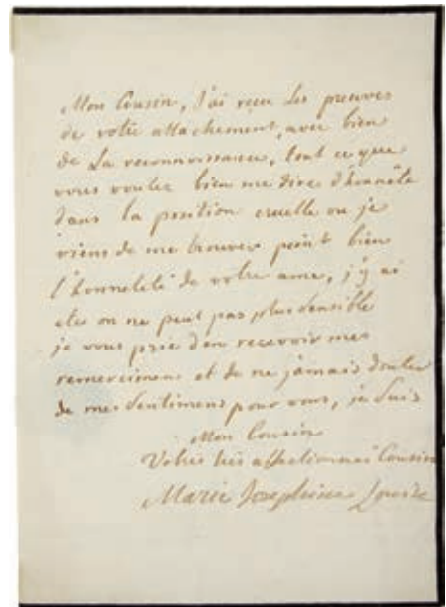 Mon Cousin, J'ai reçu les preuves
de votre attachement, avec bien
de la reconnoissance, tout ce que
vous voulez bien me dire d'honnête
dans la position cruelle ou je
viens de me trouver peint bien
l'honneteté de votre ame, j'y ai
été on ne peut pas plus sensible
je vous prie d'en recevoir mes
remercimens et de ne jamais douter
de mes sentimens pour vous, je suis
Mon Cousin
Votre très affectionnée Cousine
Marie Josephine Louise